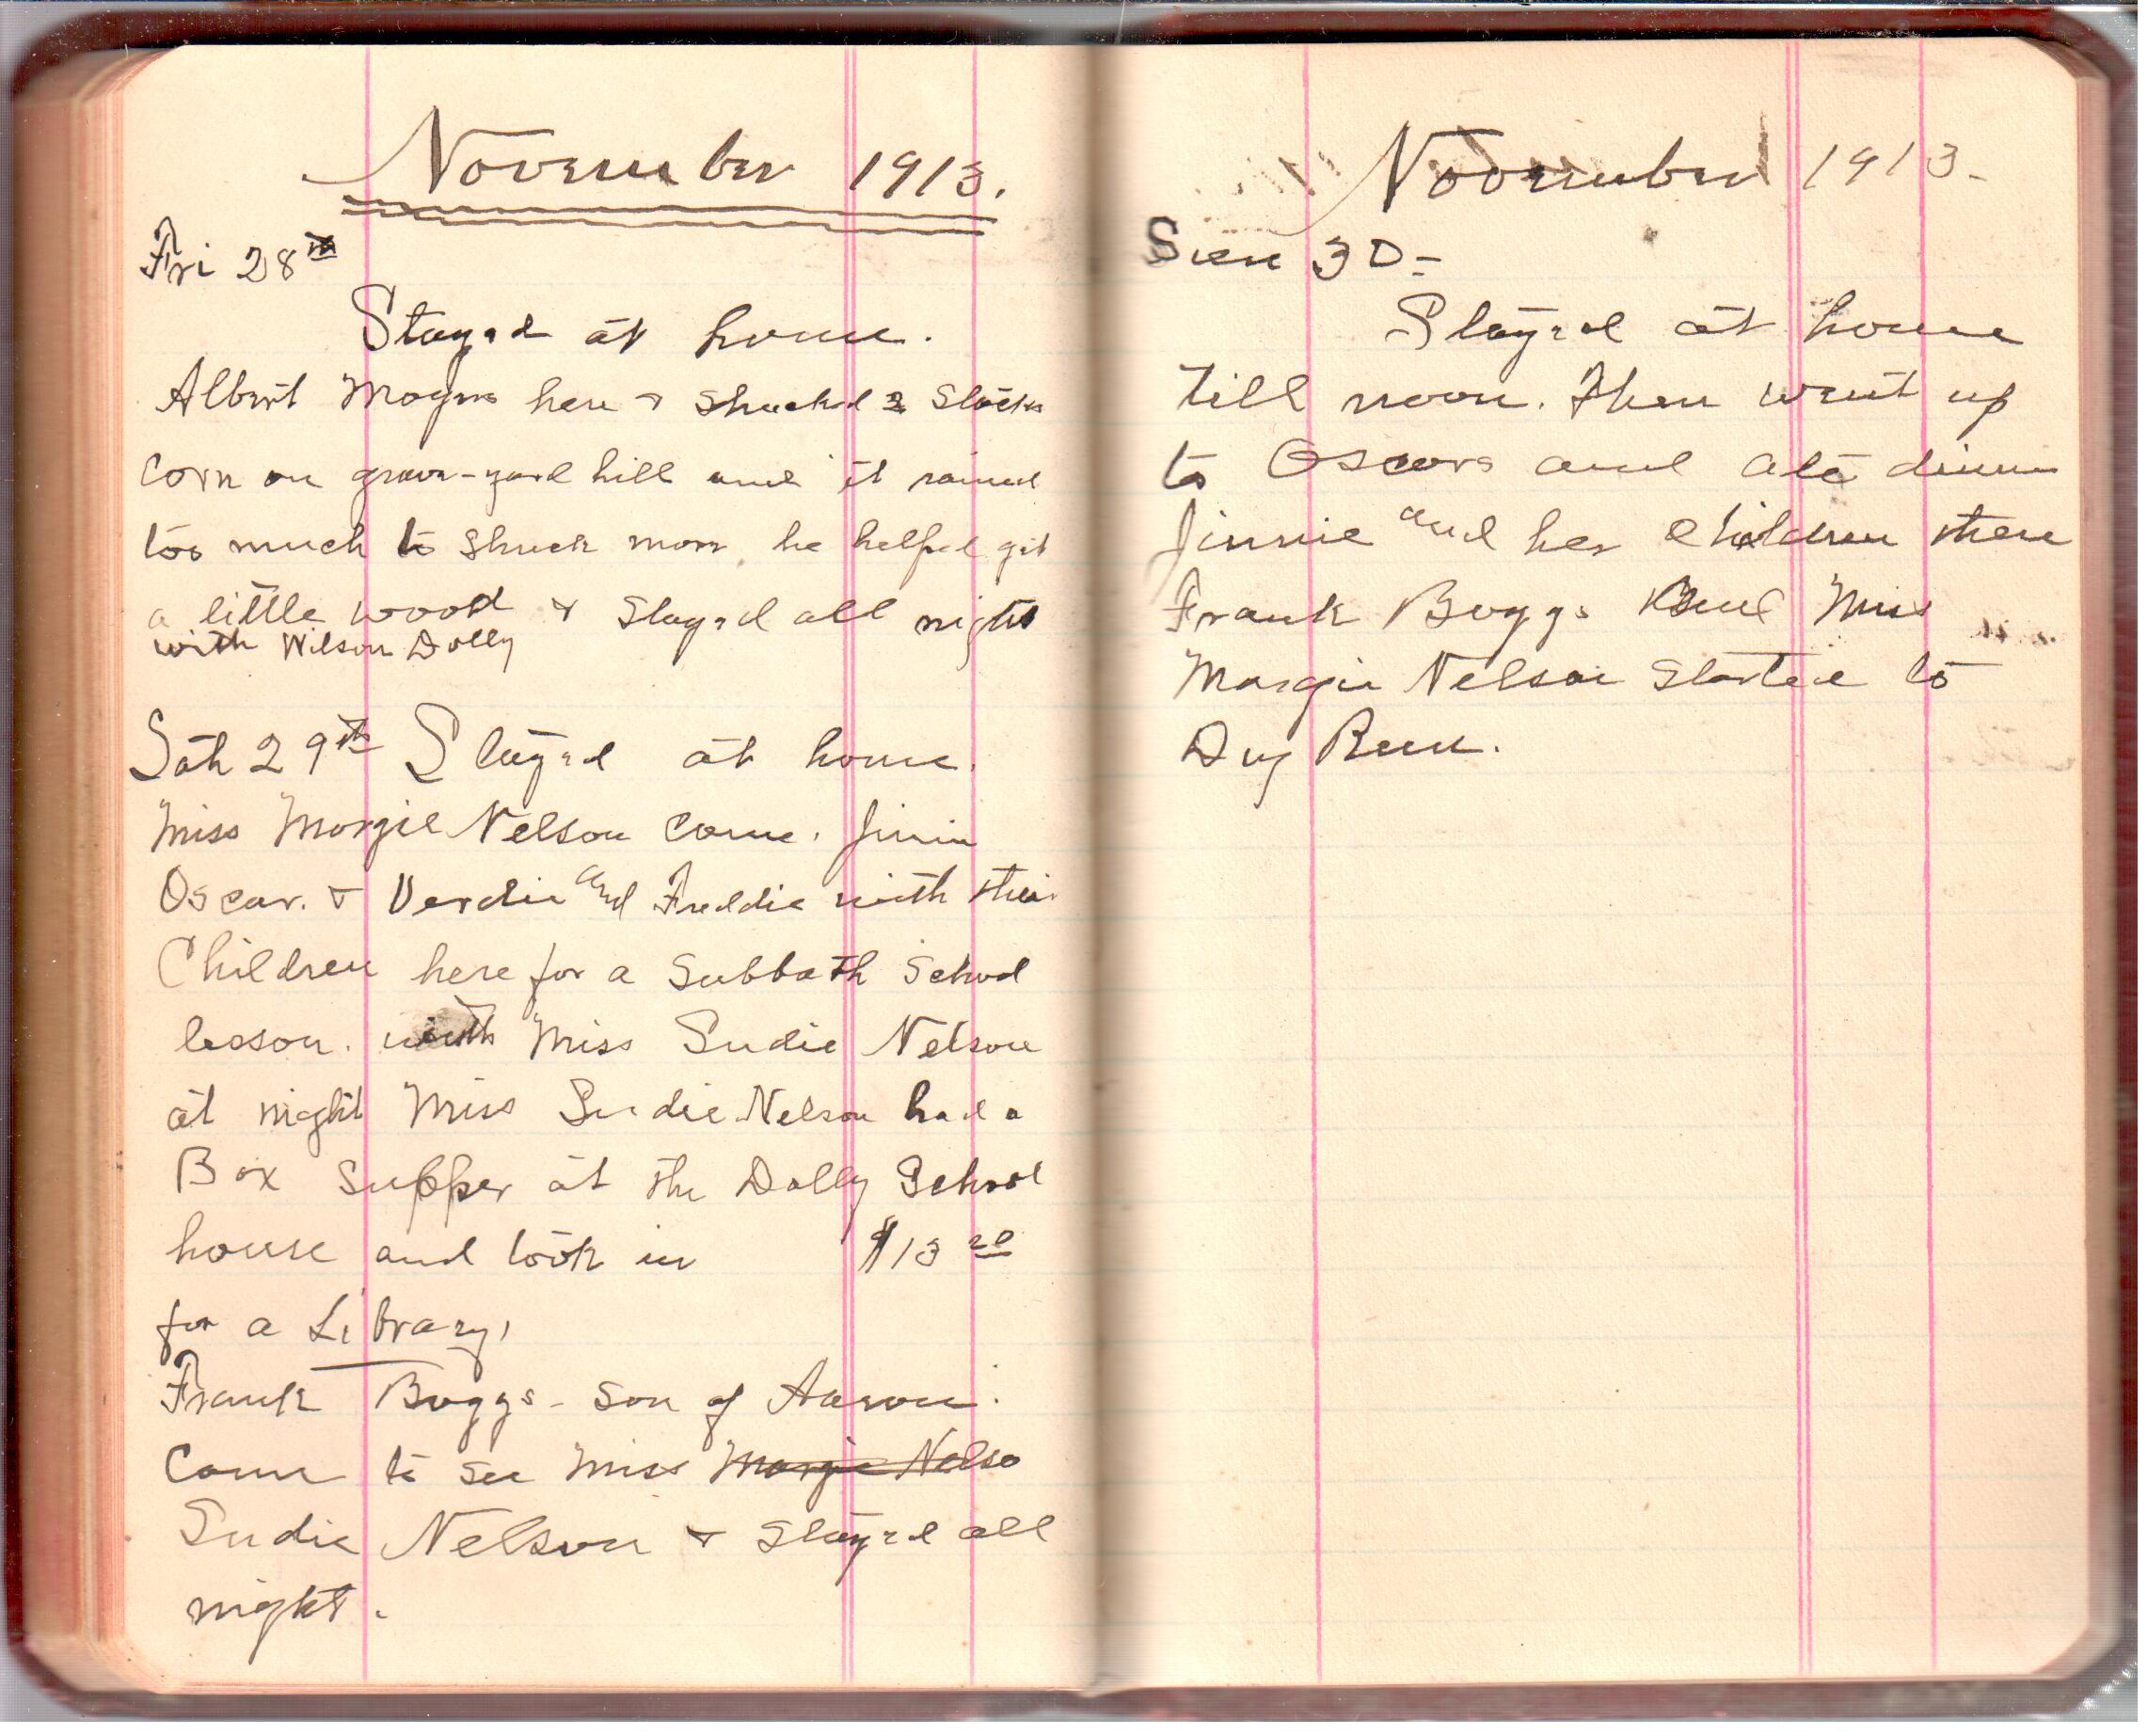 November 1913.
Fri 28th
Stayed at home.
Albert Moyers here & Shucked 2 Stacks
Corn on grave-yard hill and it rained
too much to Shuck more, he helped get
a little wood & Stayed all night
with Wilson Dolly
Sat 29th Stayed at home.
Miss Margie Nelson Come. Jinnie
Oscar. & Verdie and Freddie with their
Children here for a Sabbath School
lesson. with Miss Sudie Nelson
at night Miss Sudie Nelson had a
Box Supper at the Dolly School
house and took in $13 20
for a Library,
Frank Boggs - Son of Aaron.
Came to See Miss Margie Nelso
Sudie Nelson & Stayed all
night.
November 1913-
Sun 30-
Stayed at home
till noon. Then went up
to Oscars and ate dinner
Jinnie and her Children there
Frank Boggs and Miss
Margie Nelson Started to
Dry Run.